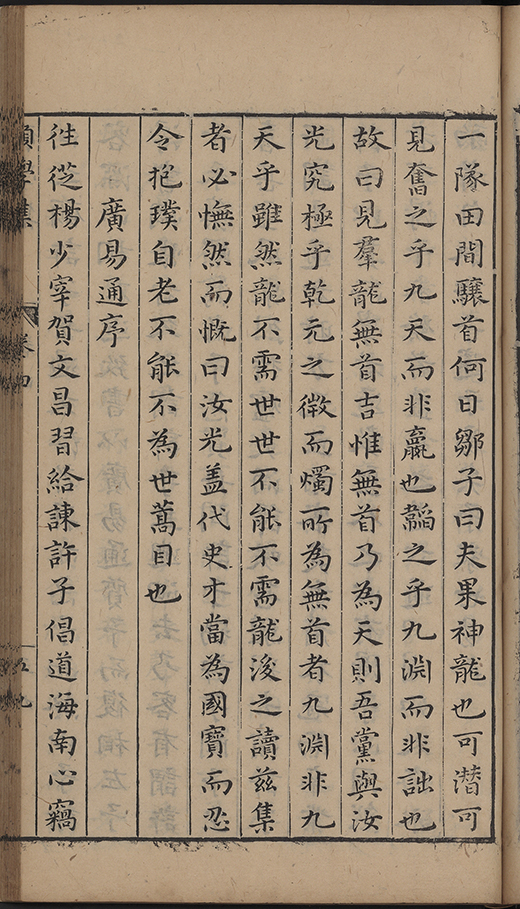 一隊田間驤首何日鄒子曰夫果神龍也可潛可
見奮之乎九天而非贏也韜之乎九淵而非詘也
故曰見羣龍無首吉惟無首乃為天則吾黨與汝
光究極乎乾元之微而燭所為無首者九淵非九
天乎雖然龍不需世世不能不需龍後之讀茲集
者必憮然而慨曰汝光盖代史才當為國寶而忍
令抱璞自老不能不為世蒿目也
廣易通序
徃從楊少宰賀文昌習給諫許子倡道海南心竊
願學集
卷四
五九